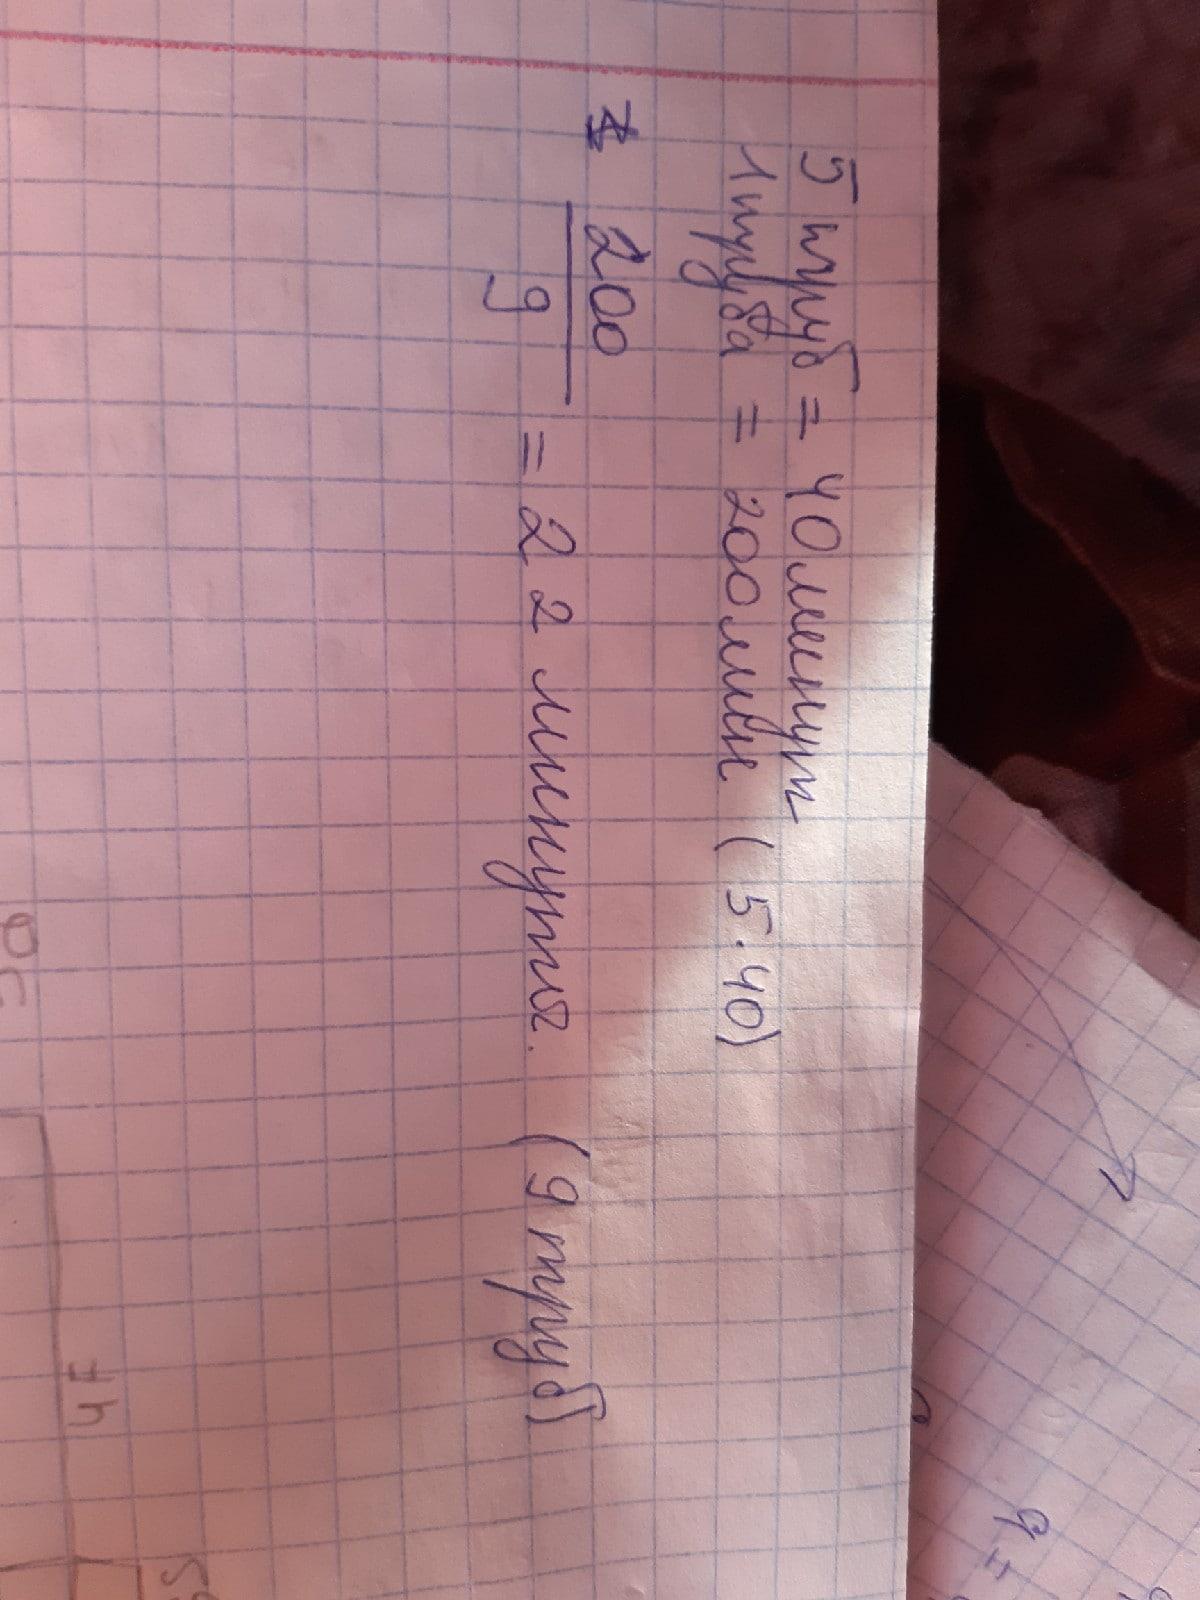 5 труб = 40 минут
1 труба = 200 мин (5·40)
200
9
= 22 минуты. (9 труб)